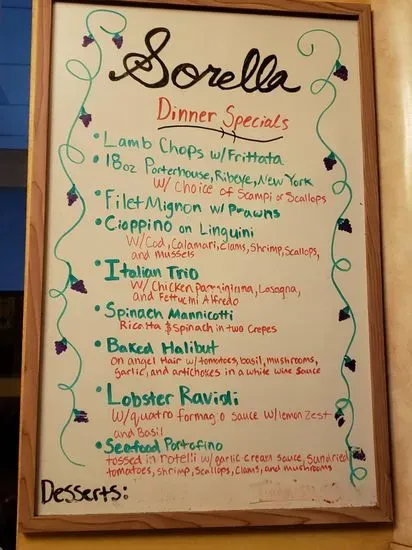 Sorella
Dinner Specials
• Lamb Chops w/Frittata
• 18oz Porterhouse, Ribeye, New York
w/ Choice of Scampi or Scallops
• Filet Mignon w/ Prawns
• Cioppino on Linguini
w/Cod, Calamari, Clams, Shrimp, Scallops,
and mussels
• Italian Trio
w/ Chicken parmigimna, Lasagna,
and Fettucini Alfredo
• Spinach Mannicotti
Ricotta & Spinach in two Crepes
• Baked Halibut
on angel Hair w/tomatoes, basil, mushrooms,
garlic, and artichokes in a white wine sauce
• Lobster Ravioli
w/quatro formagio sauce w/lemon zest
and Basil
• Seafood Portofino
tossed in rotelli w/garlic cream sauce, sundried
tomatoes, shrimp, scallops, clams, and mushrooms
Desserts: